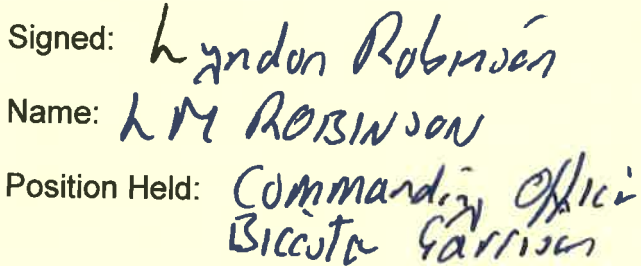 Signed: Lyndon Robinson
Name: LM ROBINSON
Position Held: Commanding Officer
Bicester Garrison